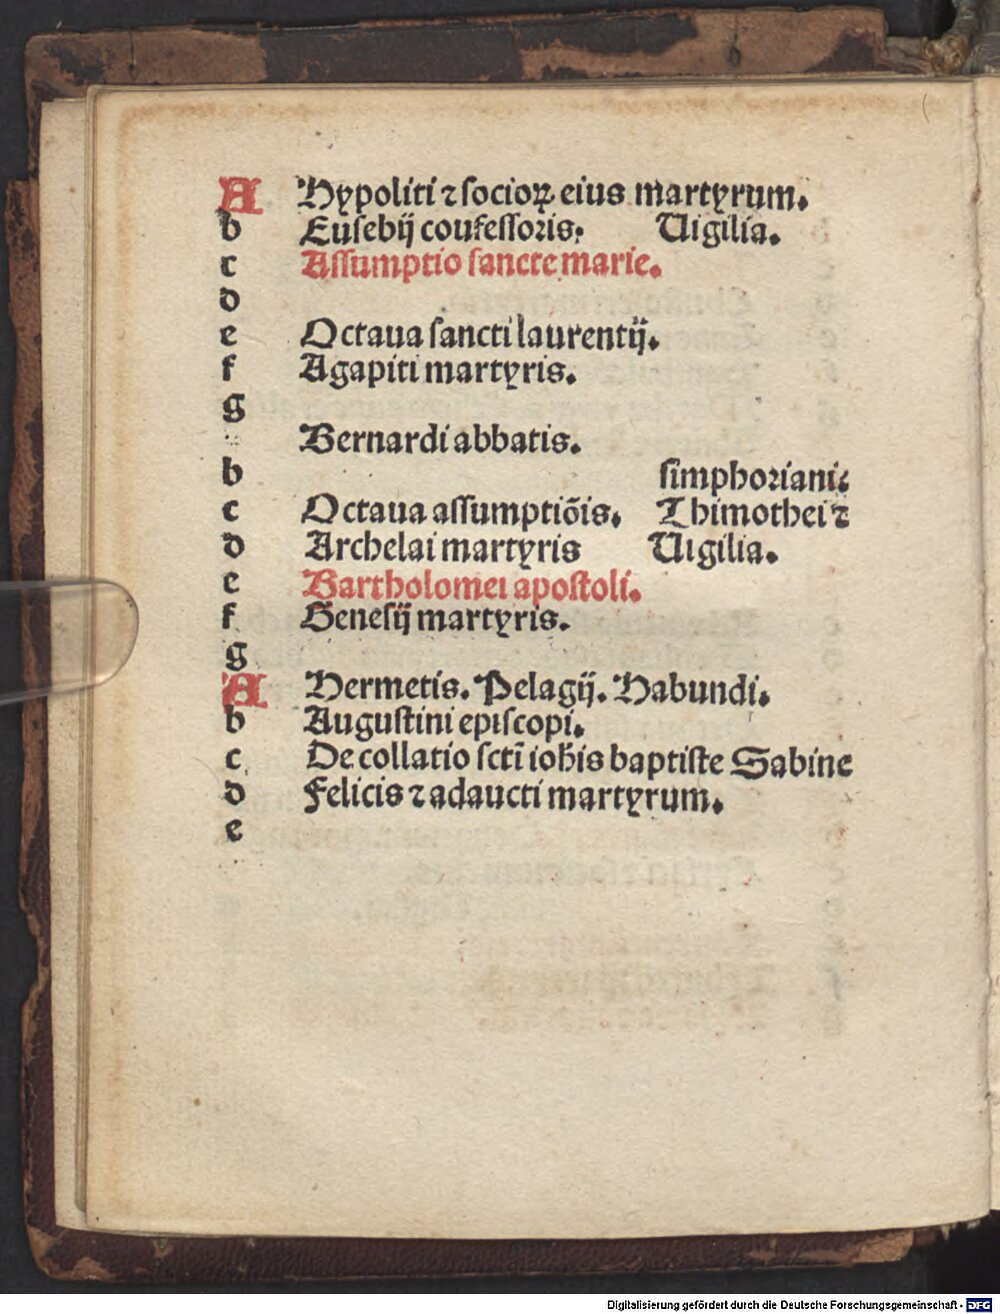 A Hypoliti ⁊ socioꝝ eius martyrum.
b Eusebij coufessoris. Uigilia.
c Assumptio sancte marie.
d
e Octaua sancti laurentij.
f Agapiti martyris.
g
Bernardi abbatis.
b simphoriani.
c Octaua assumptiōis. Thimothei ⁊
d Archelai martyris Uigilia.
e Bartholomei apostoli.
f Genesij martyris.
g
A Hermetis. Pelagij. Habundi.
b Augustini episcopi.
c De collatio sctī ioħis baptiste Sabine
d Felicis ⁊ adaucti martyrum.
e
Digitalisierung gefördert durch die Deutsche Forschungsgemeinschaft - DFG